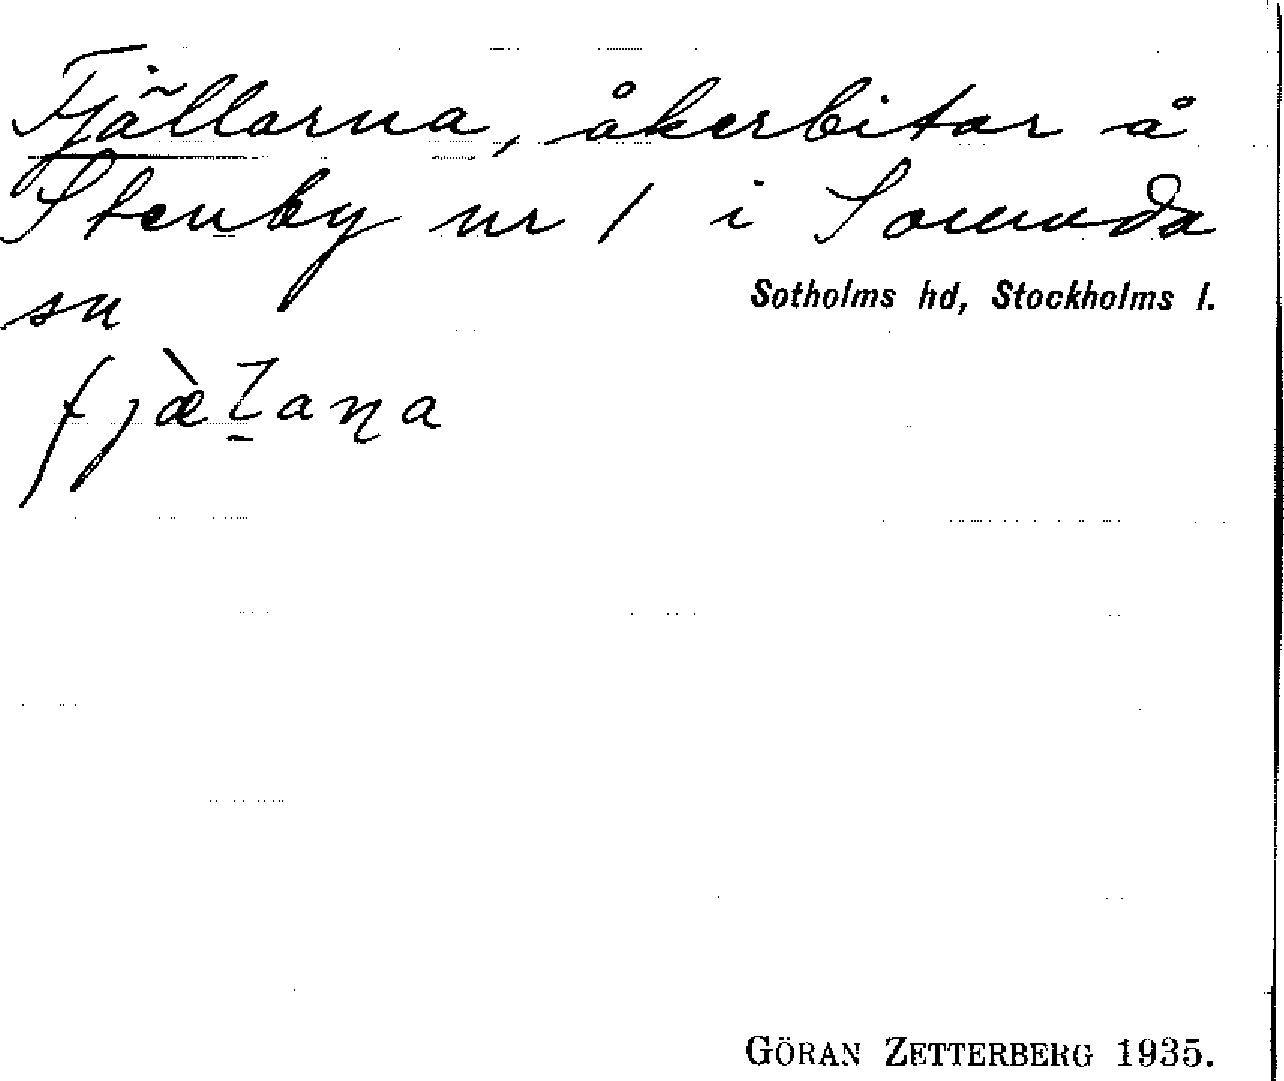 Fjällarna, åkerbitar å
Stenby nr 1 i Sorunda
sn
Sotholms hd, Stockholms l.
fjæ̀l̠aɳa
GÖRAN ZETTERBERG 1935.